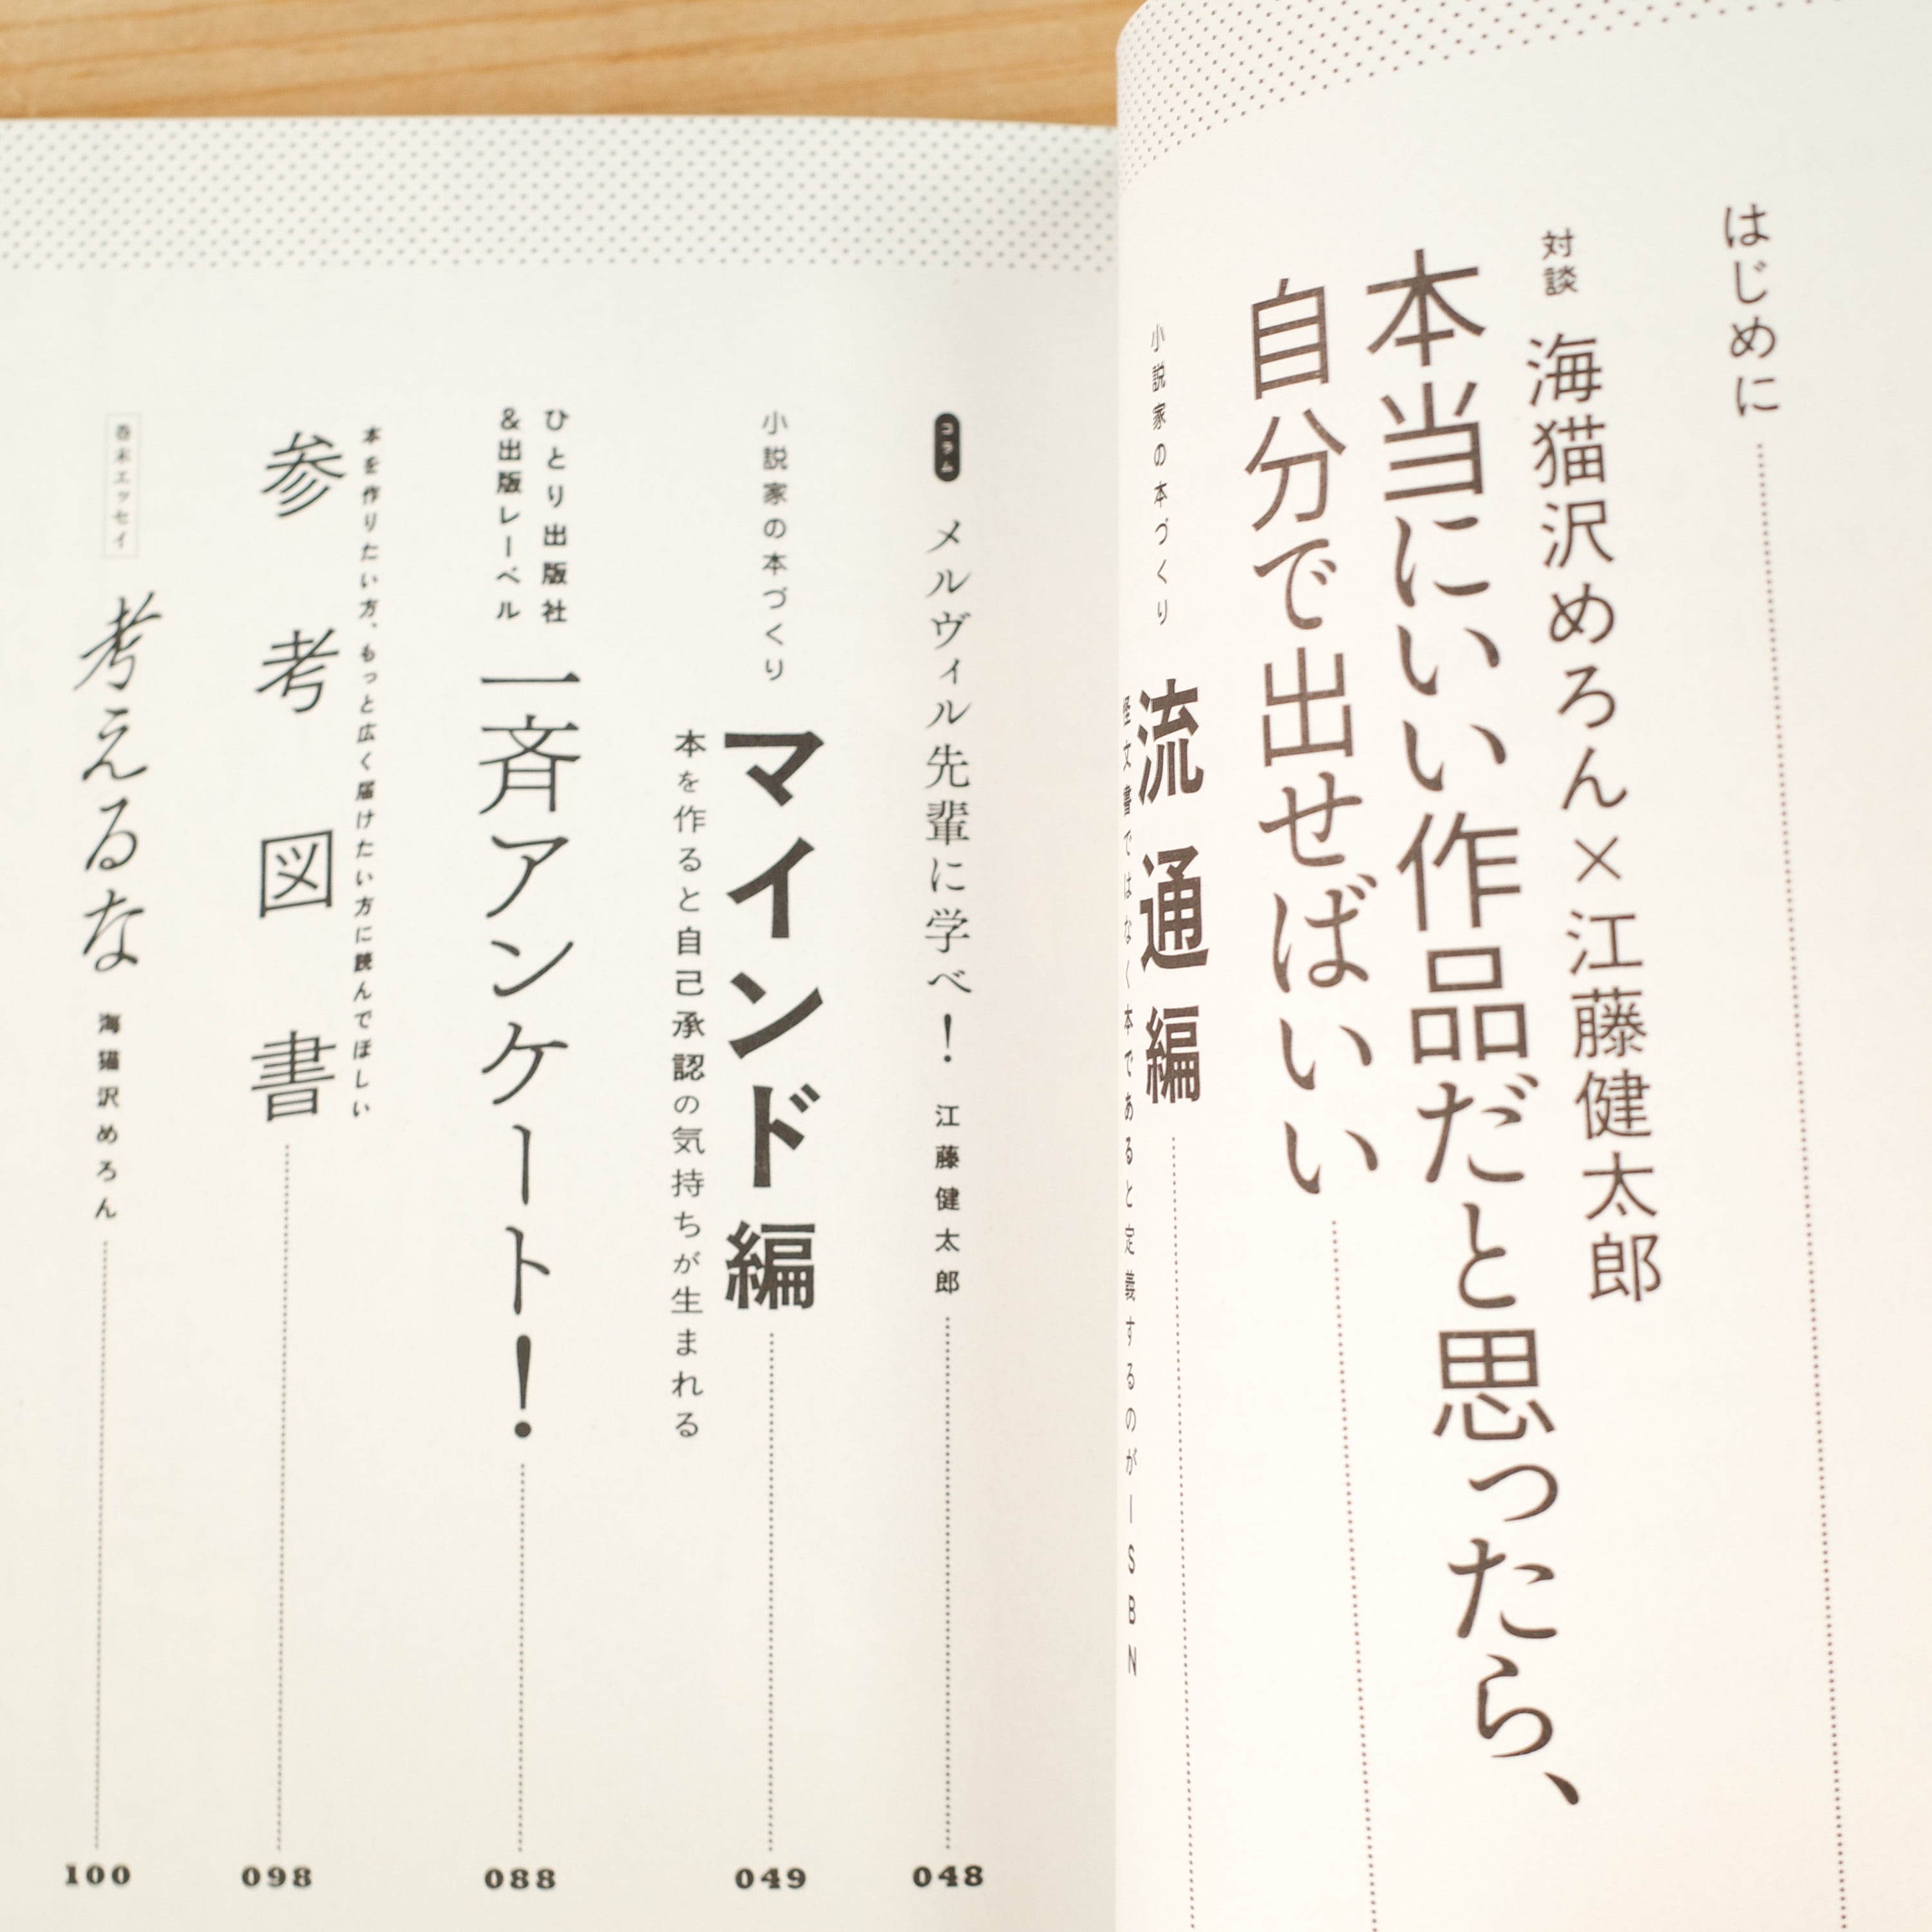 はじめに
対談
海猫沢めろん×江藤健太郎
本当にいい作品だと思ったら、
自分で出せばいい
小説家の本づくり
流通編
怪文書ではなく本であると定義するのがISBN
コラム
メルヴィル先輩に学べ!
江藤健太郎
048
小説家の本づくり
マインド編
本を作ると自己承認の気持ちが生まれる
049
ひとり出版社
&出版レーベル
一斉アンケート!
088
本を作りたい方、もっと広く届けたい方に読んでほしい
参考図書
098
巻末エッセイ
考えるな
海猫沢めろん
100